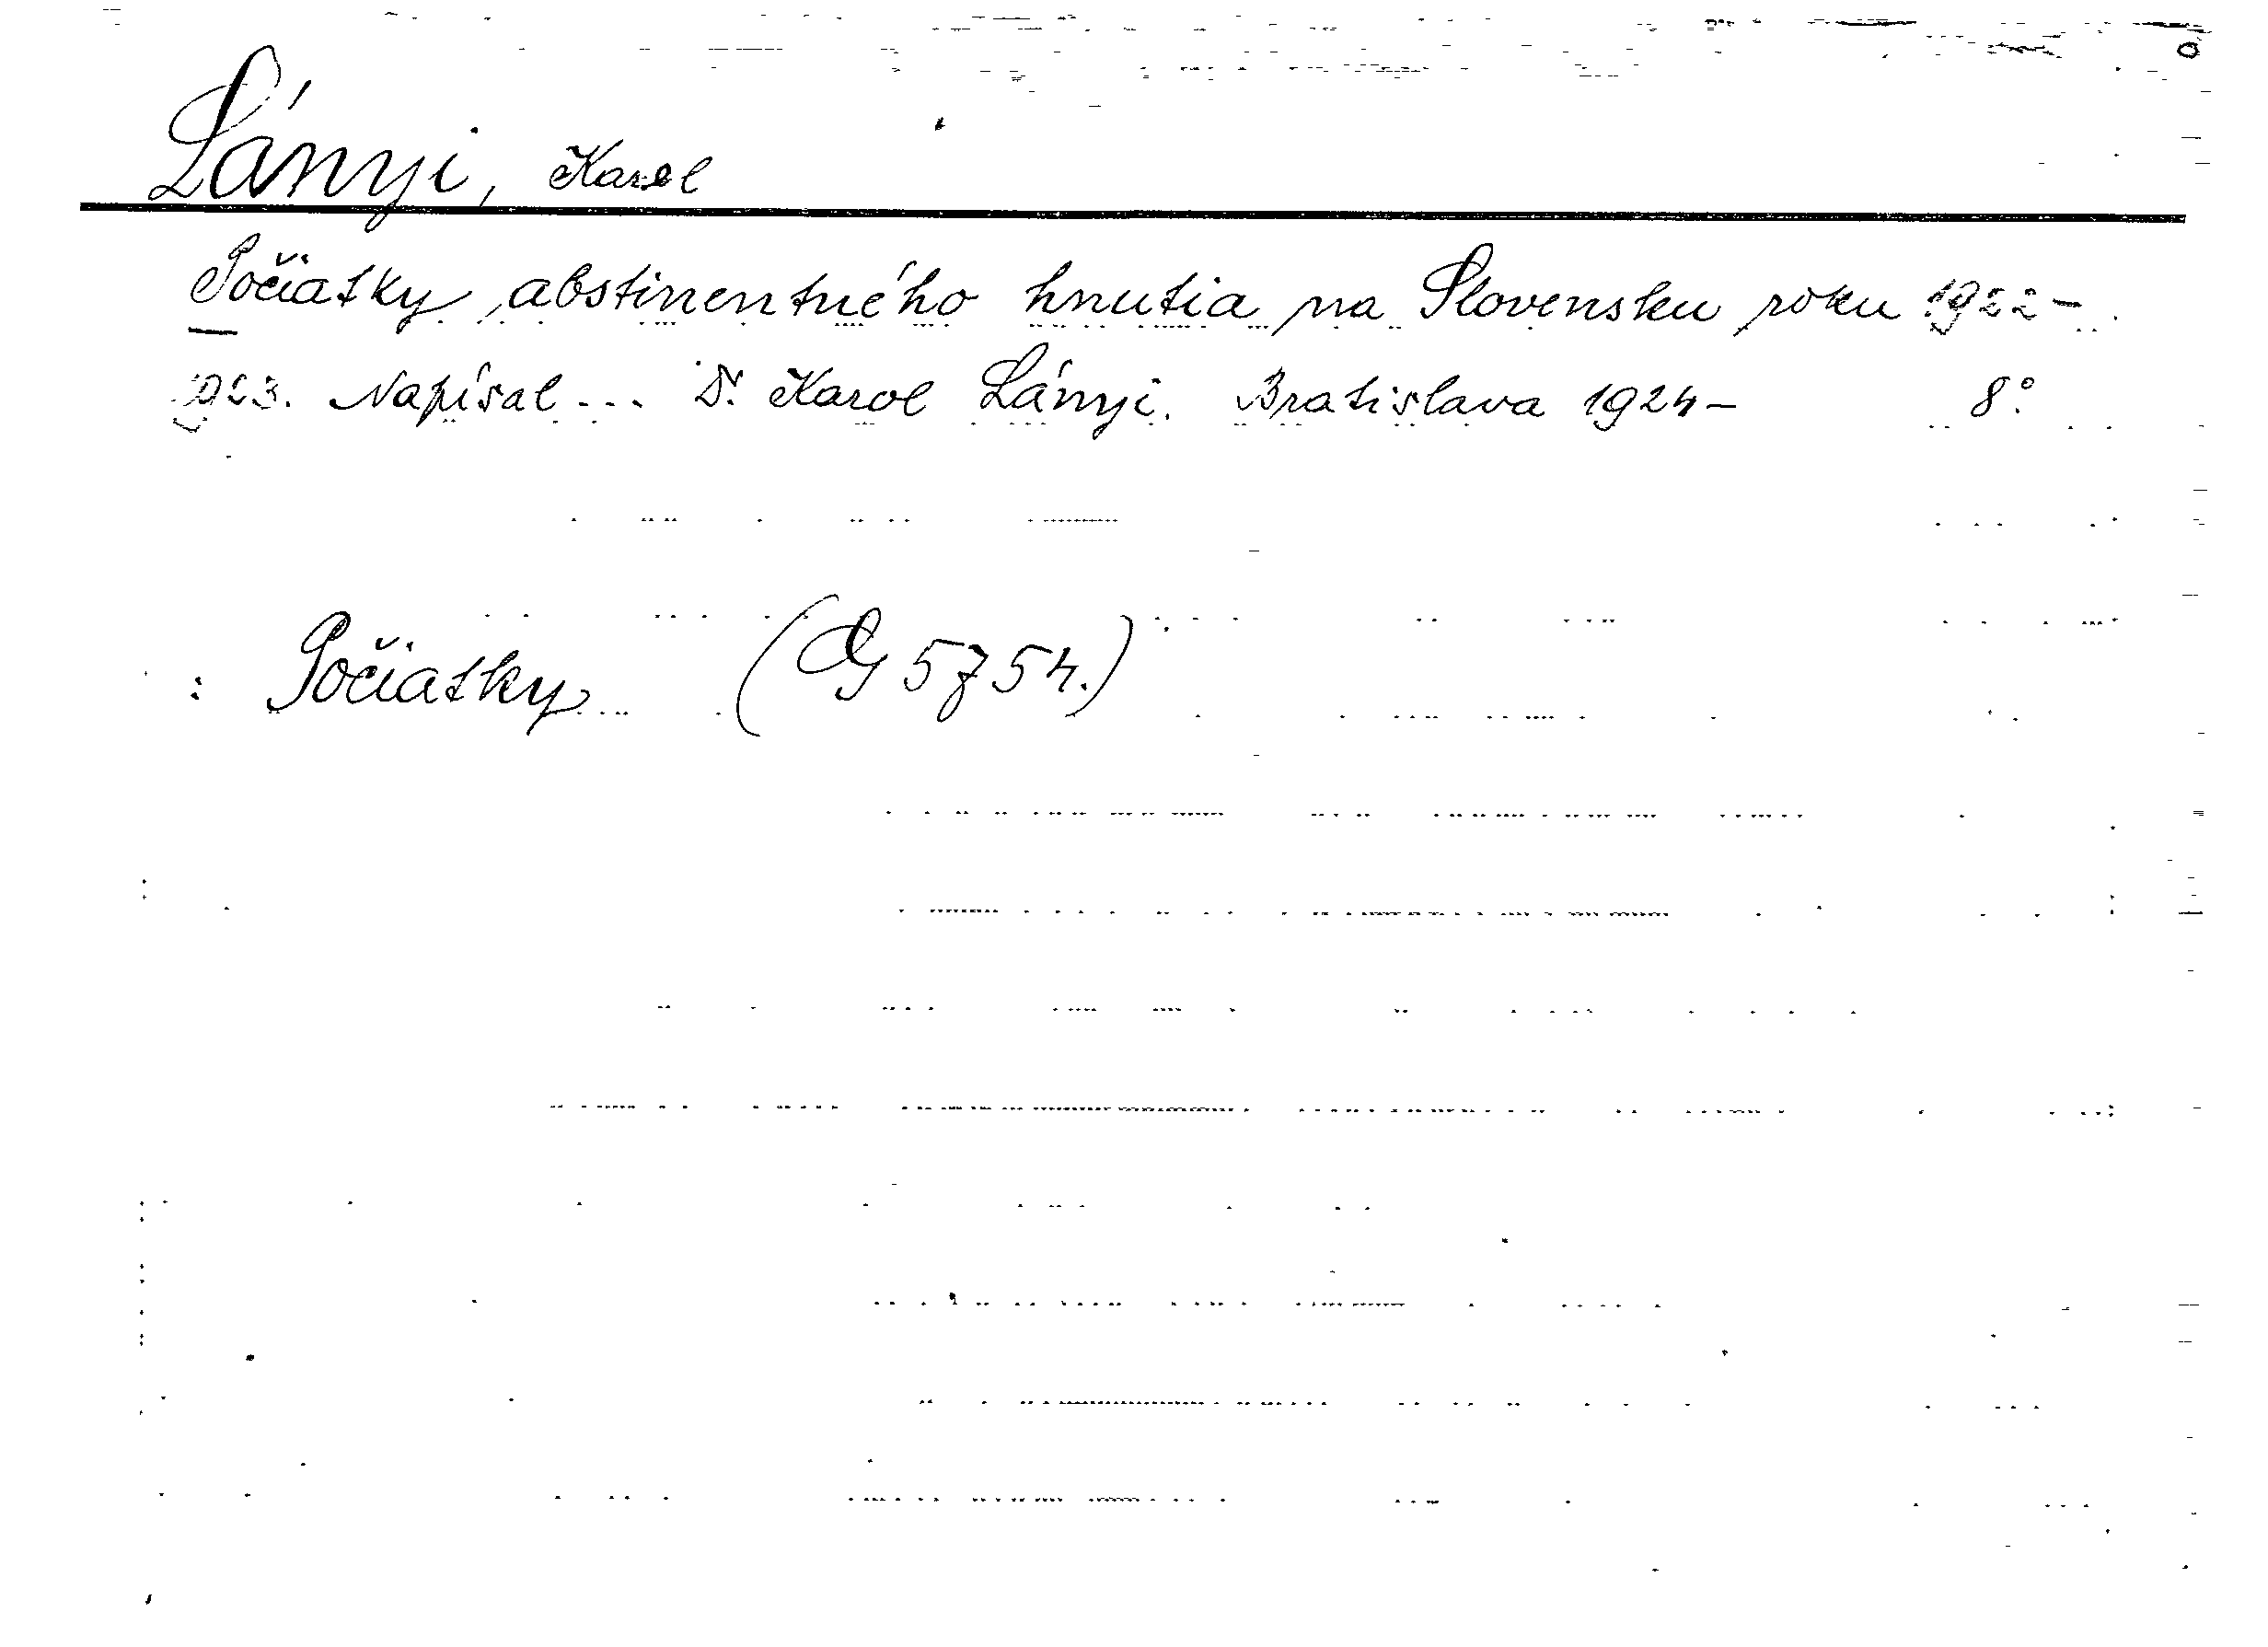 Lányi, Karel
Počiatky abstinentného hnutia na Slovensku roku 1922-
1923. Napísal... Dr. Karol Lányi. Bratislava 1924- 8°.
: Počiatky (Cg 5754.)